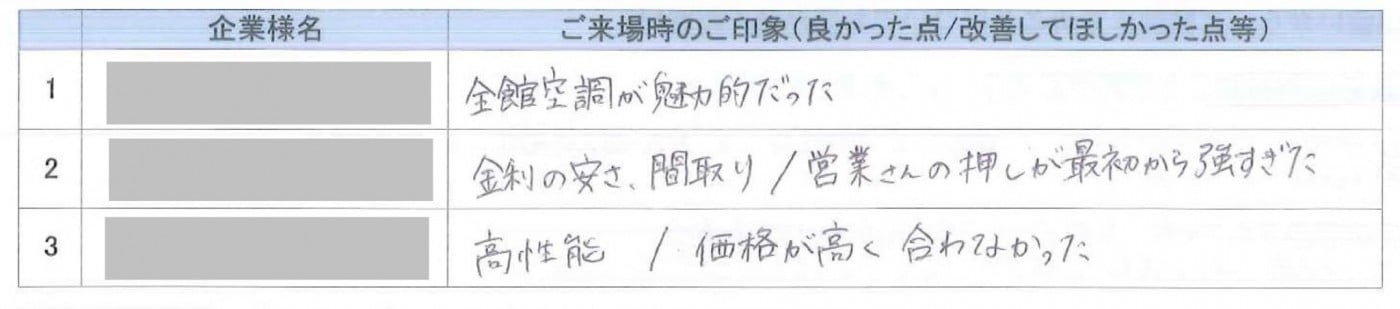 企業様名 ご来場時のご印象(良かった点/改善してほしかった点等)
1 全館空調が魅力的だった
2 金利の安さ、間取り / 営業さんの押しが最初から強すぎた
3 高性能 / 価格が高く合わなかった